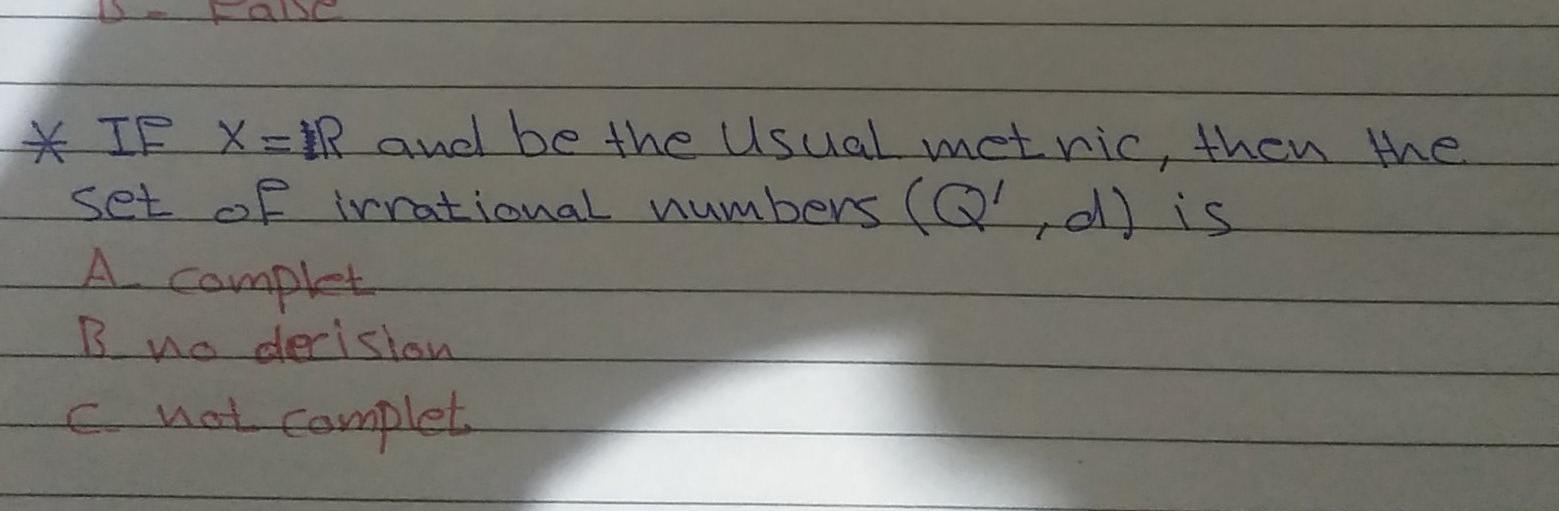 B - False
* IF X=ℝ and be the Usual metric, then the
set of irrational numbers (Q', d) is
A- complet
B no decision
C- not complet